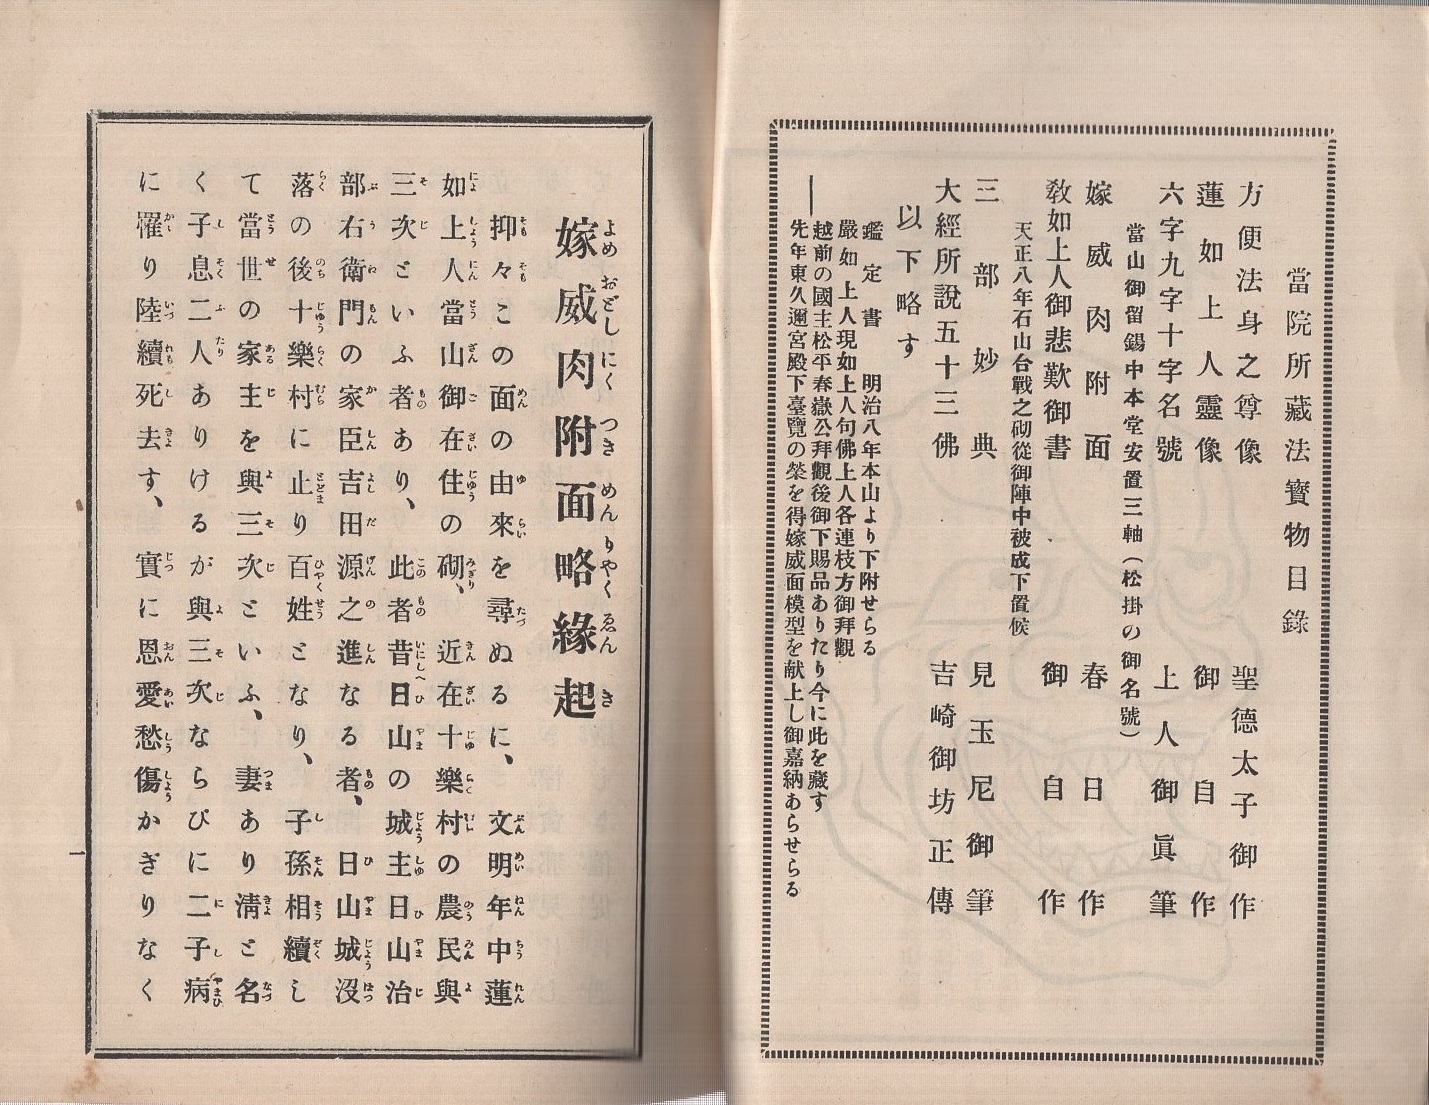 當院所藏法寳物目錄
方便法身之尊像　聖德太子御作
蓮如上人靈像　御自作
六字九字十字名號　上人御眞筆
當山御留錫中本堂安置三軸(松掛の御名號)
嫁威肉附面　春日作
敎如上人御悲歎御書　御自作
天正八年石山合戰之砌從御陣中被成下置候
三部妙典　見玉尼御筆
大經所說五十三佛　吉崎御坊正傳
以下略す
鑑定書　明治八年本山より下附せらる
嚴如上人現如上人句佛上人各連枝方御拜觀
越前の國主松平春嶽公拜觀後御下賜品ありたり今に此を藏す
先年東久邇宮殿下臺覽の榮を得嫁威面模型を献上し御嘉納あらせらる
嫁威肉附面略緣起
よめおどしにくつきめんりやくゑんき
抑々この面の由來を尋ぬるに、文明年中蓮
如上人當山御在住の砌、近在十樂村の農民與
三次といふ者あり、此者昔日山の城主日山治
部右衛門の家臣吉田源之進なる者、日山城沒
落の後十樂村に止り百姓となり、子孫相續し
て當世の家主を與三次といふ、妻あり淸と名
く子息二人ありけるが與三次ならびに二子病
に罹り陸續死去す、實に恩愛愁傷かぎりなく
一